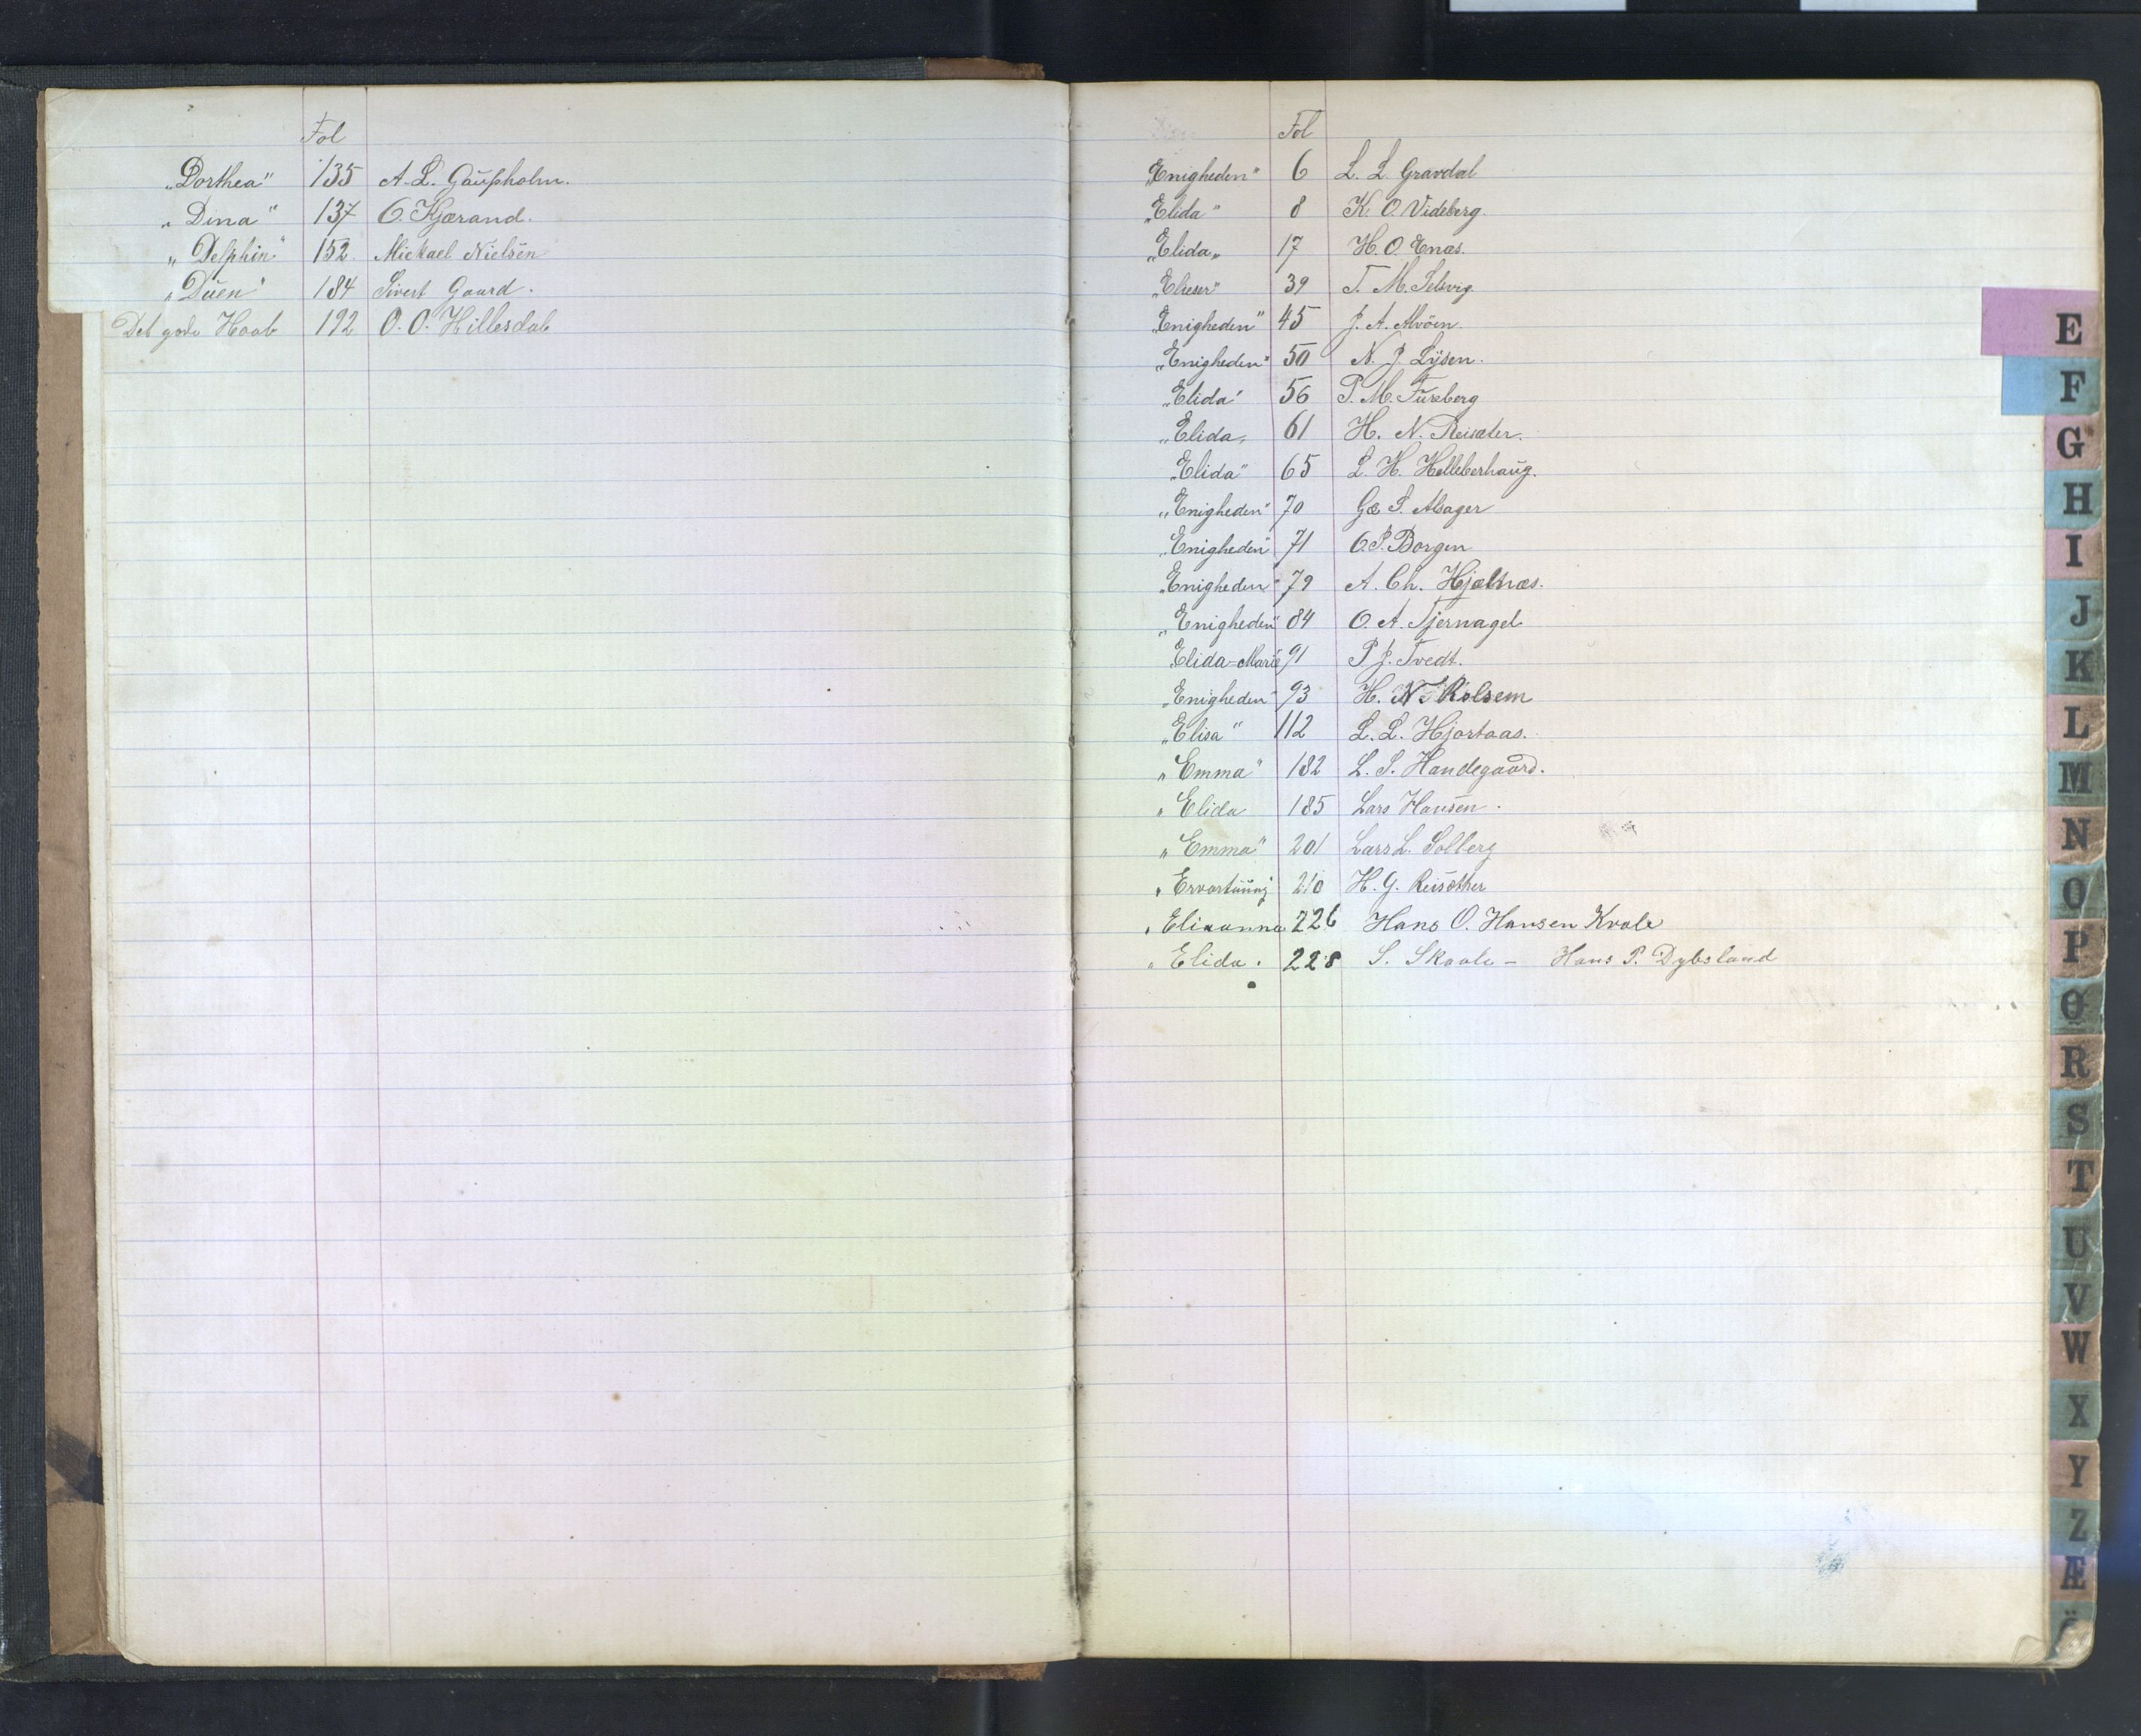 Fol
„Dorthea" 135 A. L. Gaupholm.
„Dina" 137 O. Kjærand.
„Delphin" 152. Mickael Nielsen
„Duen" 184 Sivert Gaard.
Det gode Haab 192 O. O. Hillesdal
Fol
„Enigheden" 6 L. L. Gravdal
„Elida" 8 K. O. Videberg.
„Elida„ 17 H. O. Enæs.
„Elieser" 39 T. M. Selsvig
„Enigheden" 45 J. A. Alvöen.
„Enigheden" 50 N. J. Lysen.
„Elida" 56 P. M. Fureberg
„Elida„ 61 H. N. Reisæter.
„Elida" 65 L. H. Helleberhaug.
„Enigheden" 70 G. S. Alsager
„Enigheden" 71 O. P. Borgen
„Enigheden" 79 A. Ch. Hjælnæs.
„Enigheden" 84 O. A. Tjernagel
„Elida=Marie 91 P J. Tvedt.
„Enigheden" 93 H. N. Rolsem
„Elisa" 112 L. L. Hjortaas.
„Emma" 182 L. S. Handegaard.
„Elida 185 Lars Hansen.
„Emma" 201 Lars L. Solberg
210 H. G.
„ 226 Hans O. Hansen Kvale
„Elida. 228 S. Skaale - Hans P. Dybsland
E
F
G
H
I
J
K
L
M
N
O
P
Q
R
S
T
U
V
W
X
Y
Z
Æ
Ö